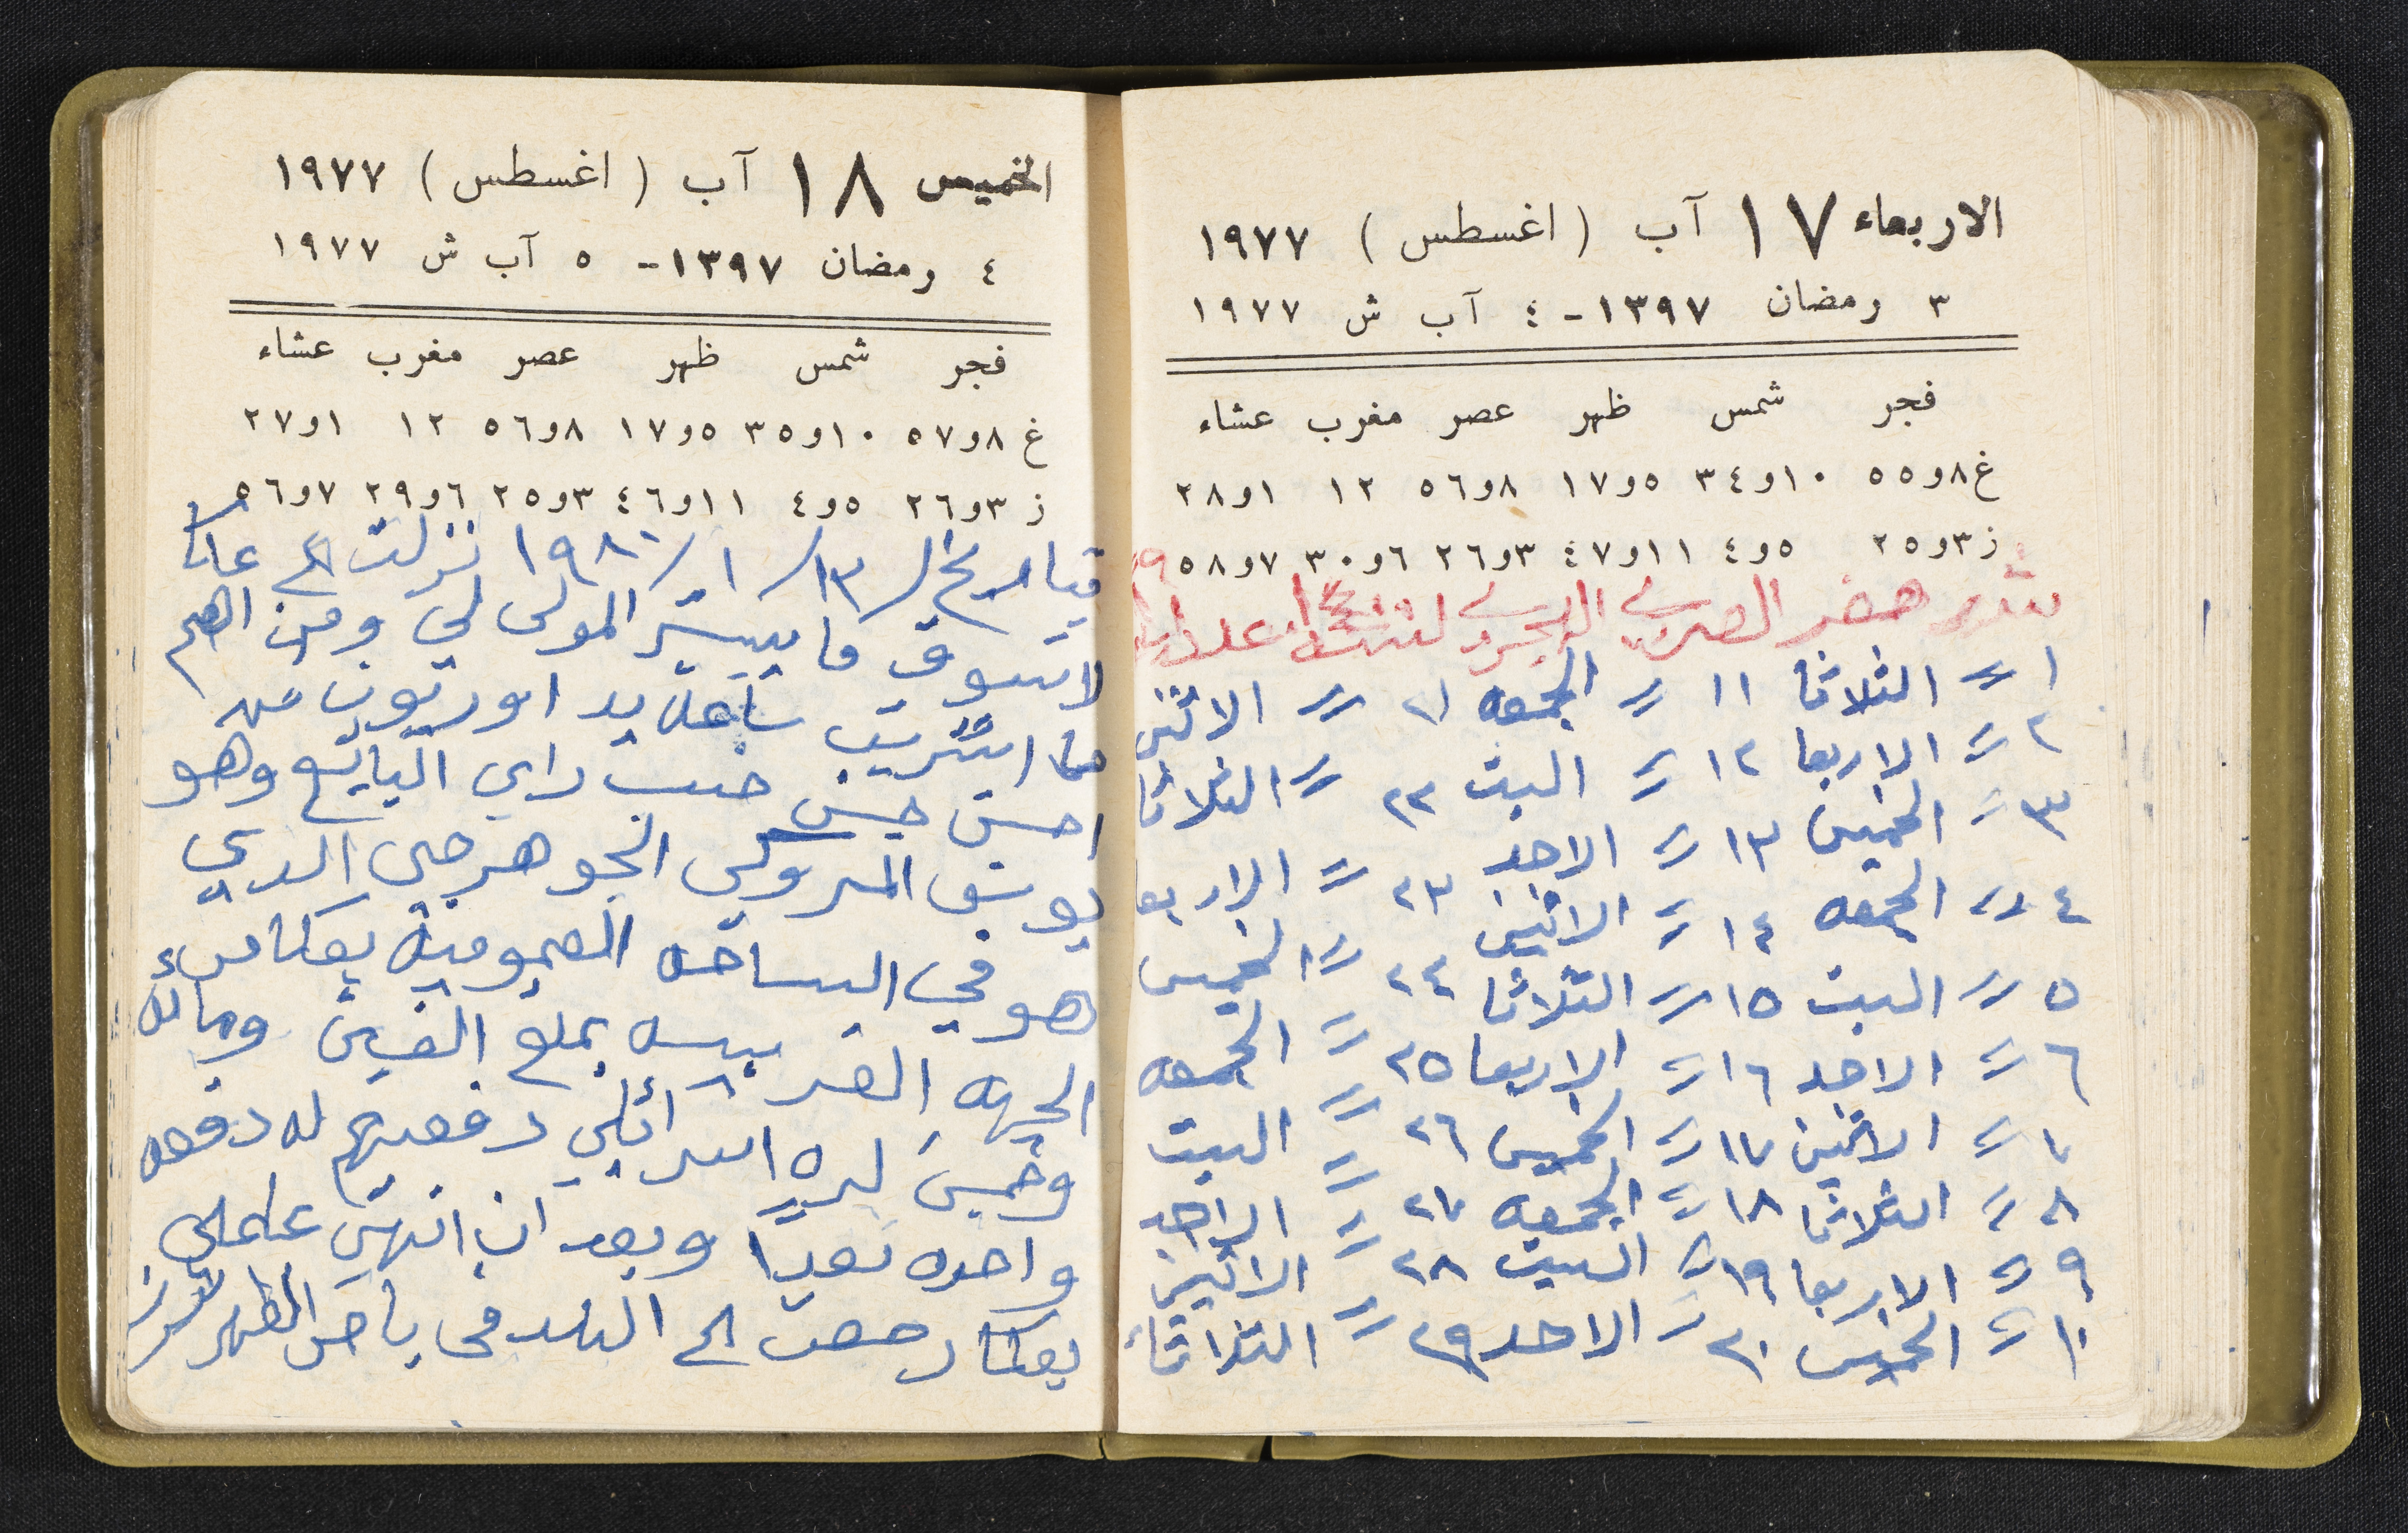 الاربعاء ١٧ آب ( اغسطس ) ١٩٧٧
٣ رمضان ١٣٩٧ - ٤ آب ش ١٩٧٧
فجر شمس ظهر عصر مغرب عشاء
غ ٨و٥٥ ١٠و٣٤ ٥و١٧ ٨و٥٦ ١٢ ١و٢٨
ز ٣و٢٥ ٥و٤ ١١و٤٧ ٣و٢٦ ٦و٣٠ ٧و٥٨
صفر العربي الهجري
١ = الثلاثا ١١ = الجمعه ٢١ = الاثنين
٢ = الاربعا ١٢ = السبت ٢٢ = الثلاثا
٣ = الخميس ١٣ = الاحد ٢٣ = الاربعا
٤ = الجمعه ١٤ = الاثنين ٢٤ = الخميس
٥ = السبت ١٥ = الثلاثا ٢٥ = الجمعه
٦ = الاحد ١٦ = الاربعا ٢٦ = السبت
٧ = الاثنين ١٧ = الخميس ٢٧ = الاحد
٨ = الثلاثا ١٨ = الجمعه ٢٨ = الاثنين
٩ = الاربعا ١٩ = السبت ٢٩ = الثلاثاء
١٠ = الخميس ٢٠ = الاحد
الخميس ١٨ آب ( اغسطس ) ١٩٧٧
٤ رمضان ١٣٩٧ - ٥ آب ش ١٩٧٧
فجر شمس ظهر عصر مغرب عشاء
غ ٨و٥٧ ١٠و٣٥ ٥و١٧ ٨و٥٦ ١٢ ١و٢٧
ز ٣و٢٦ ٥و٤ ١١و٤٦ ٣و٢٥ ٦و٢٩ ٧و٥٦
١٣/١/١٩٨٠ نزلت الى عكا
لاتسوق ما ييسر المولى لي ومن اهم
ما اشتريت ساعة يد
احسن جنس حسب راي البايع وهو
الجوهرجي الذي
هو في الساحه العموميه بعكا من
الجهه الغربيه بمبلغ الفين ومائه
وخمسين ليره اسرائلي دفعتهم له دفعه
واحده نقديًا وبعد ان انهيت عملي
بعكا رجعت الى البلد في باص الظهر